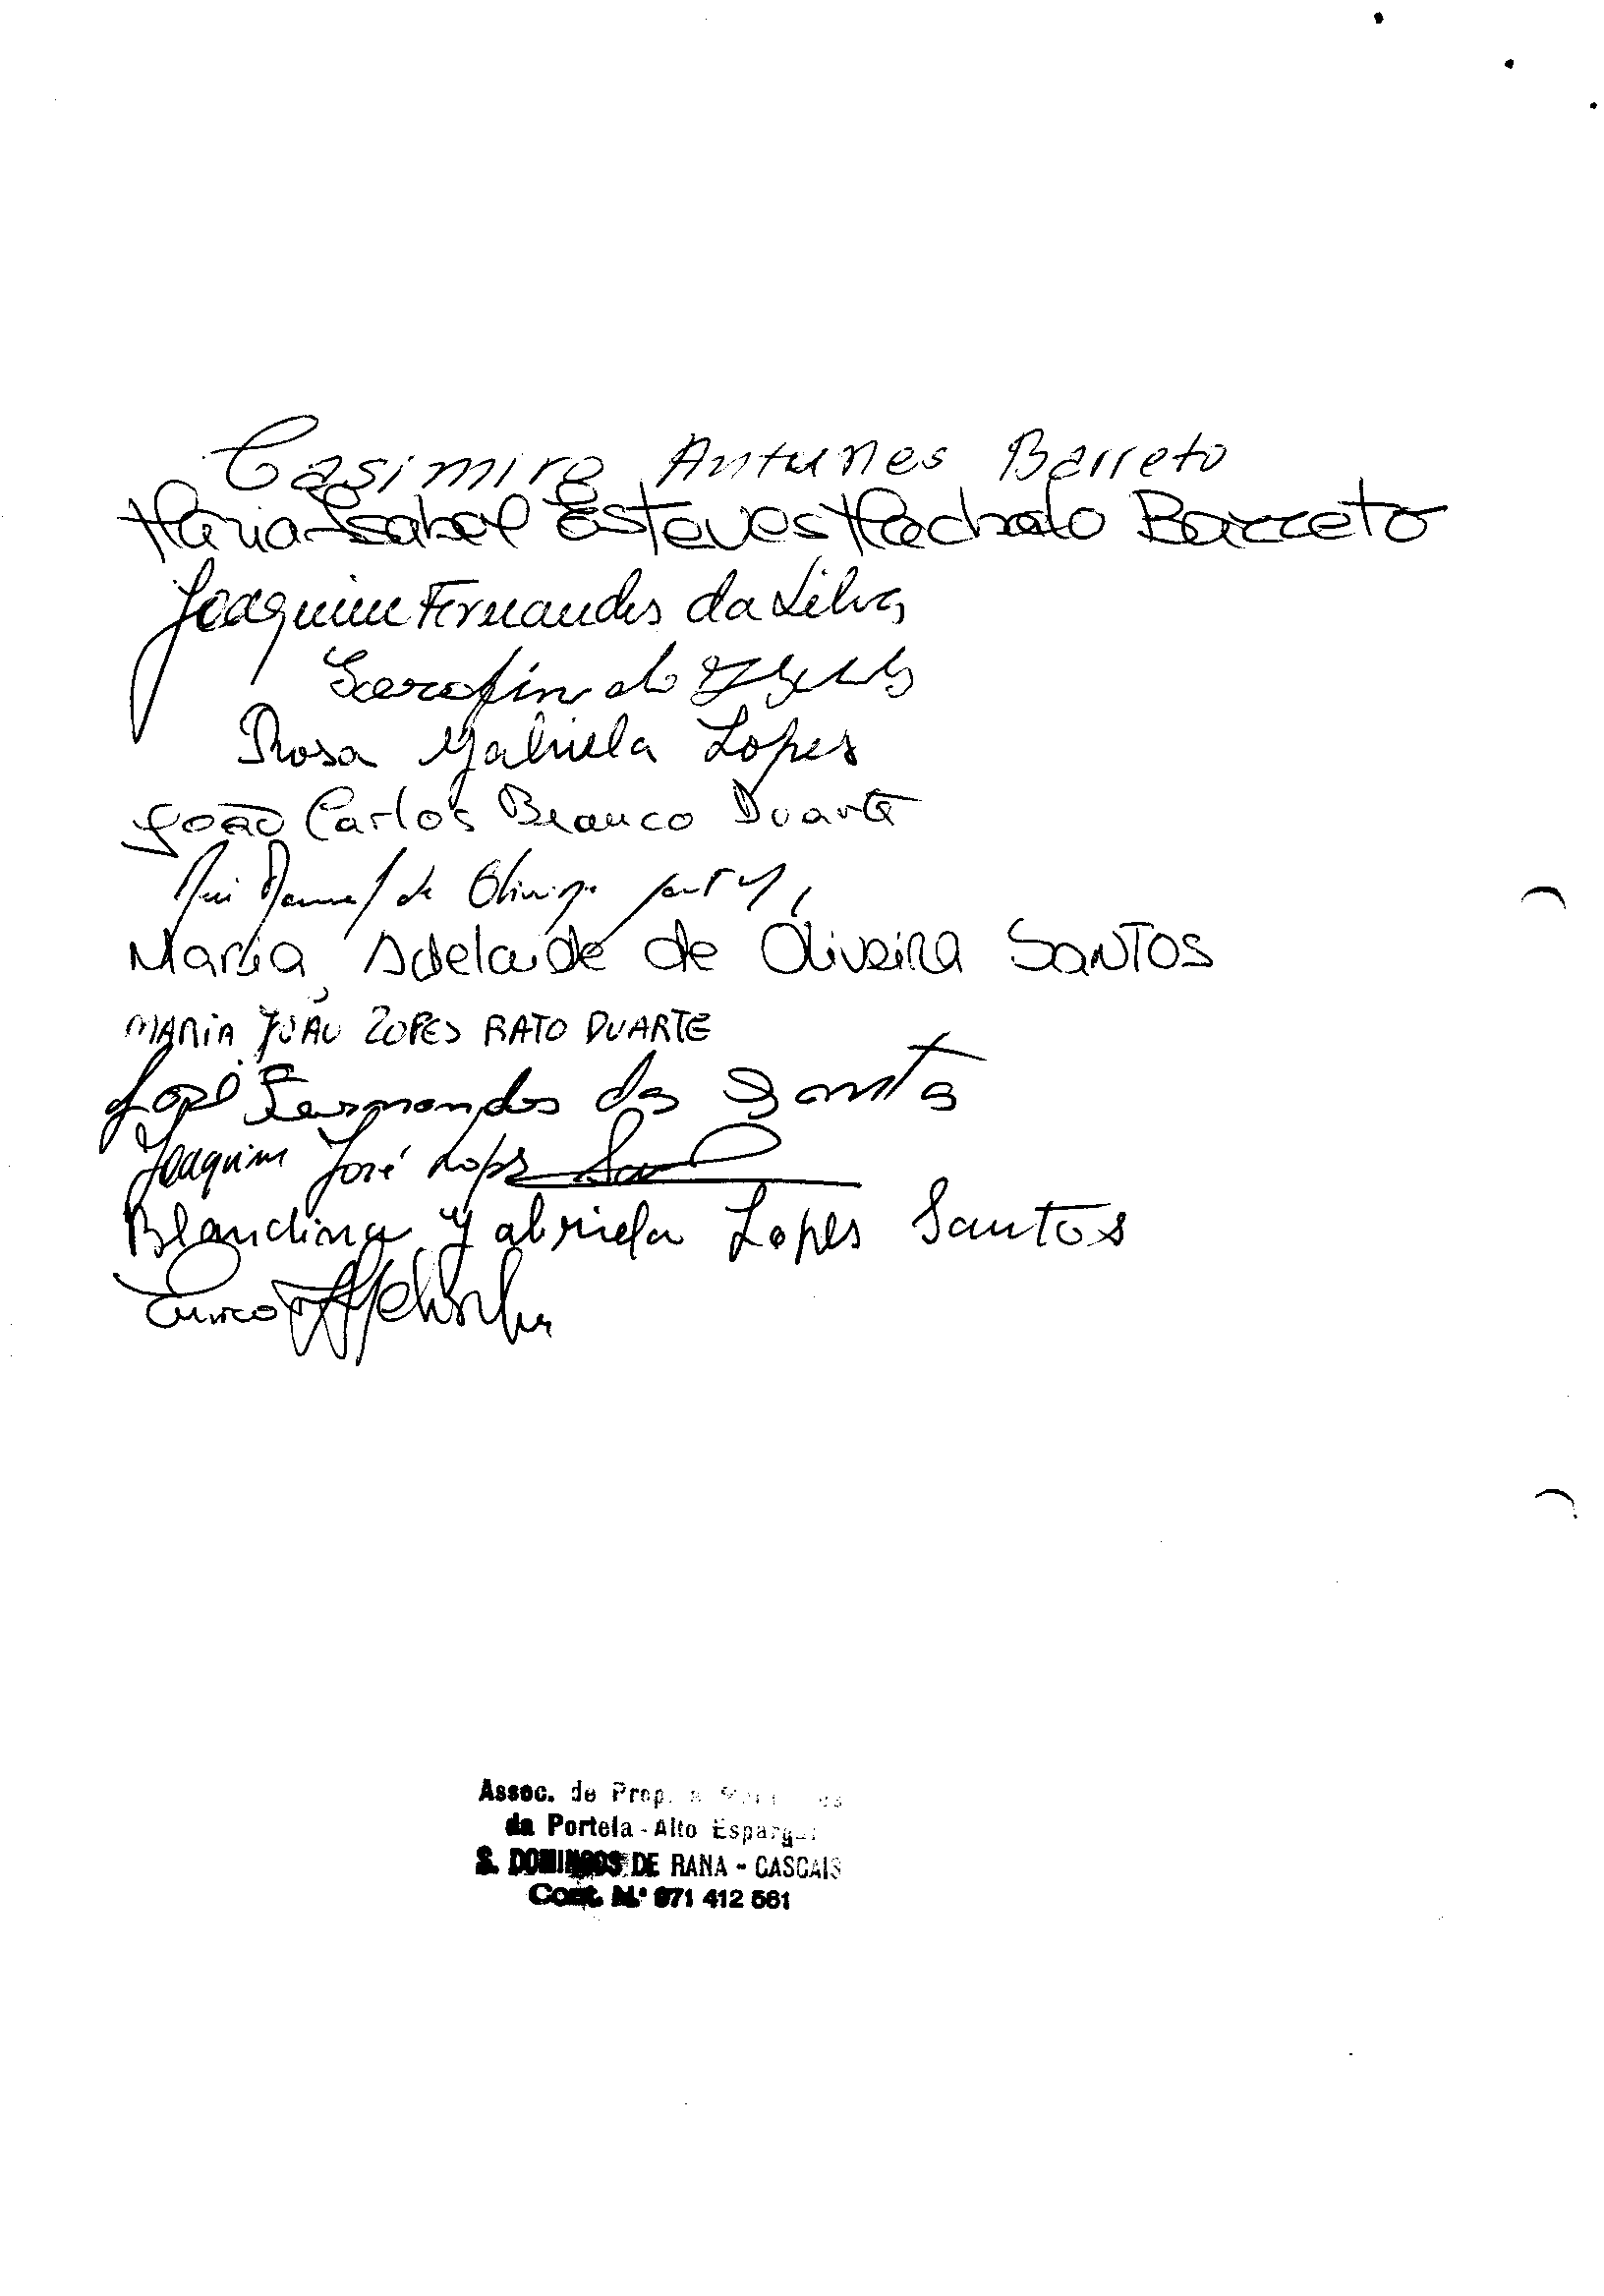 Casimiro Antunes Barreto
Maria Isabel Esteves Machado Barreto
Joaquim Fernandes da Silva
Serafim do
Rosa Gabriela Lopes
João Carlos Branco Duarte
Rui Manuel de Oliveira
Maria Adelaide de Oliveira SANTOS
MARIA JOÃO LOPES RATO DUARTE
José Fernandes dos Santos
Joaquim José Lopes
Blandina Gabriela Lopes Santos
Assoc. de Prop. e
da Portela - Alto
S. DOMINGOS DE RANA - CASCAIS
Cont. N.º 971 412 561